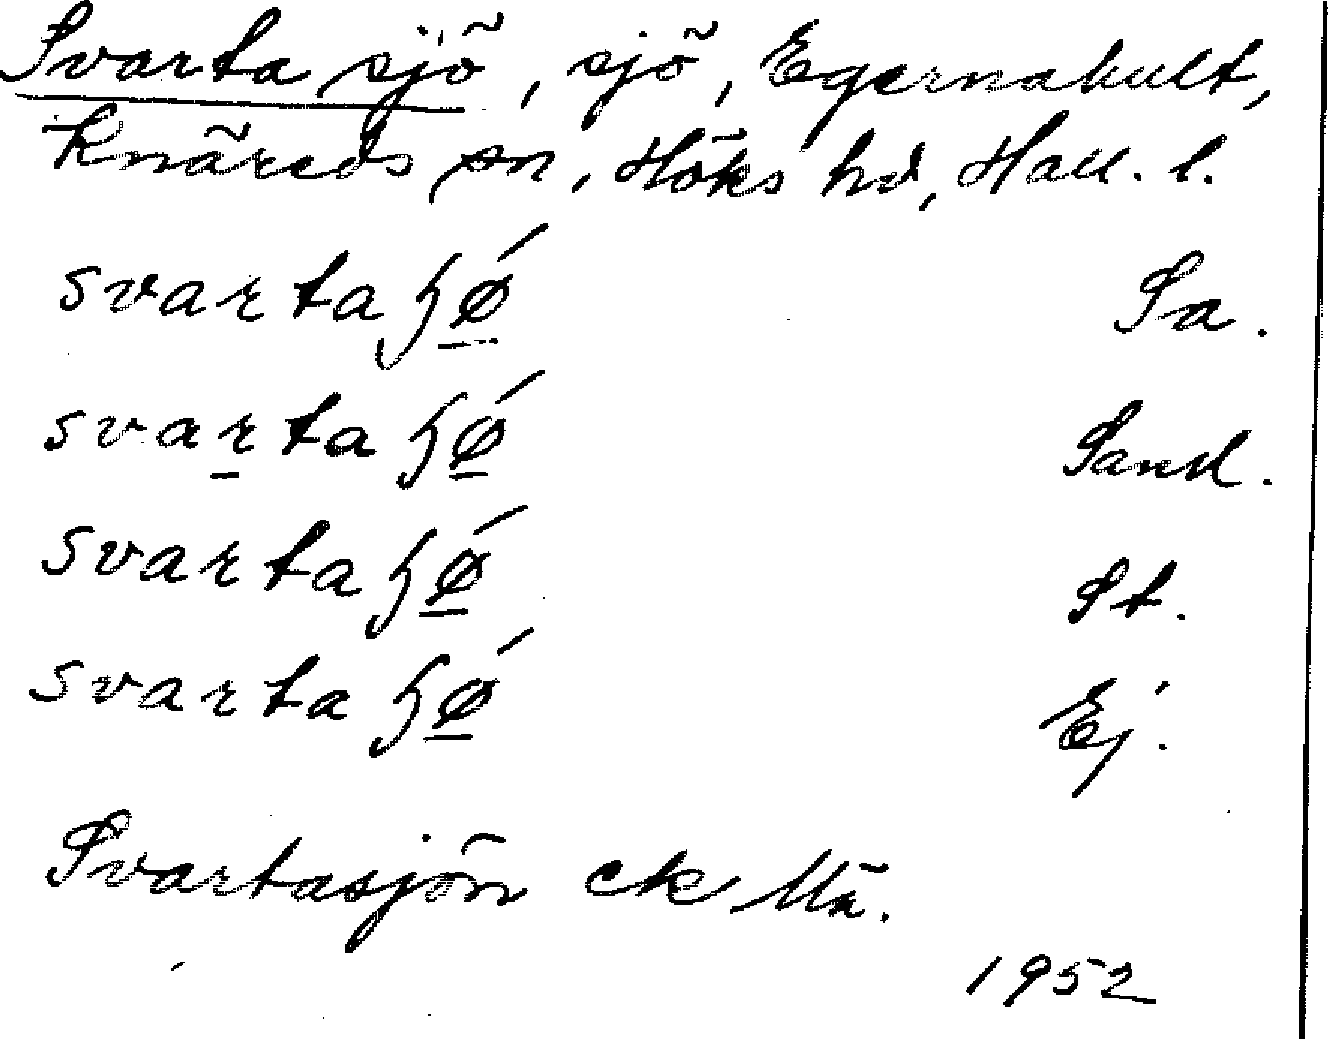 Svarta sjö, sjö, Egernahult,
Knäreds sn, Höks hd, Hall. l.
svarta ɧǿ̲ Sa.
svar̲ta ɧǿ̲ Sand.
svarta ɧǿ̲ St.
svarta ɧǿ̲ Ej.
Svartasjön ek
1952